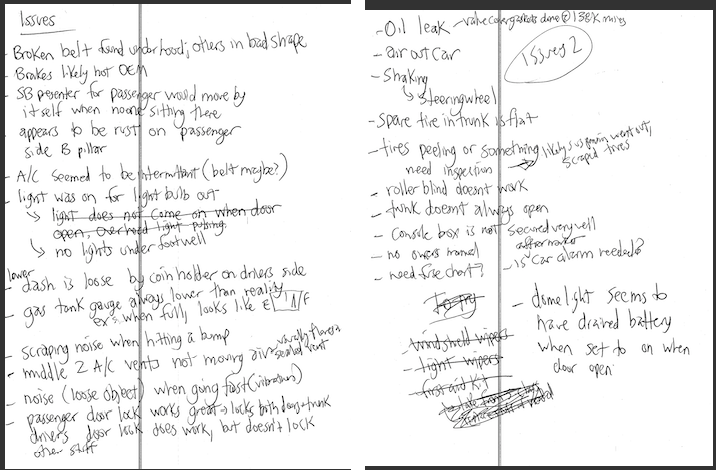 Issues
- Broken belt found under hood; others in bad shape
- Brakes likely not OEM
- SB presenter for passenger would move by
itself when no one sitting there
appears to be rust on passenger
side B pillar
- A/C seemed to be intermittent (belt maybe?)
- light was on for light bulb out
↳ light does not come on when door
open, overhead light pulsing
↳ no lights under footwell
lower
- dash is loose by coin holder on drivers side
- gas tank gauge always lower than reality
ex: when full, looks like E F
- scraping noise when hitting a bump
- middle 2 A/C vents not moving air usually there is
sealed vent
- noise (loose object) when going fast (vibration)
- passenger door lock works great → locks both doors + trunk
drivers door lock does work, but doesn't lock
other stuff
- Oil leak - valve cover gaskets done @ 138K miles
- air out car
- Shaking
↳ Steering wheel
issues 2
- spare tire in trunk is flat
- tires peeling or something → likely went out,
scraped tires
need inspection
- roller blind doesnt work
- trunk doesnt always open
- console box is not secured very well
- no owners manual
- need fuse chart?
aftermarket
- is car alarm needed?
To try
- windshield wipers
- light wipers
- first aid kit
- dome light seems to
have drained battery
when set to on when
door open